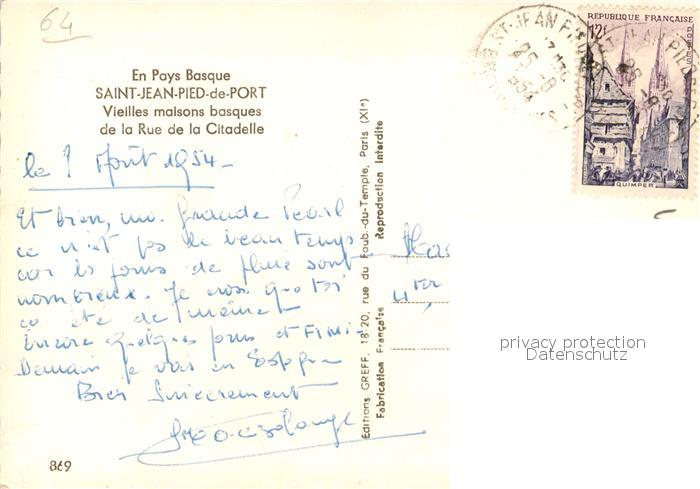 64
En Pays Basque
SAINT-JEAN-PIED-de-PORT
Vieilles maisons basques
de la Rue de la Citadelle
Août 1954-
Et bien, ma Grande
ce n'est pas le beau temps
car les jours de pluie sont
nombreux. Je crois que toi
de même
Encore quelques jours et FINI-
Demain je vais en Espagne
Bien Sincèrement
869
Editions GREFF, 18-20, rue du Faub.-du-Temple, Paris (XIe)
Fabrication Française Reproduction Interdite
ST-JEAN PIED
REPUBLIQUE FRANÇAISE
12f
POSTES
QUIMPER
privacy protection
Datenschutz